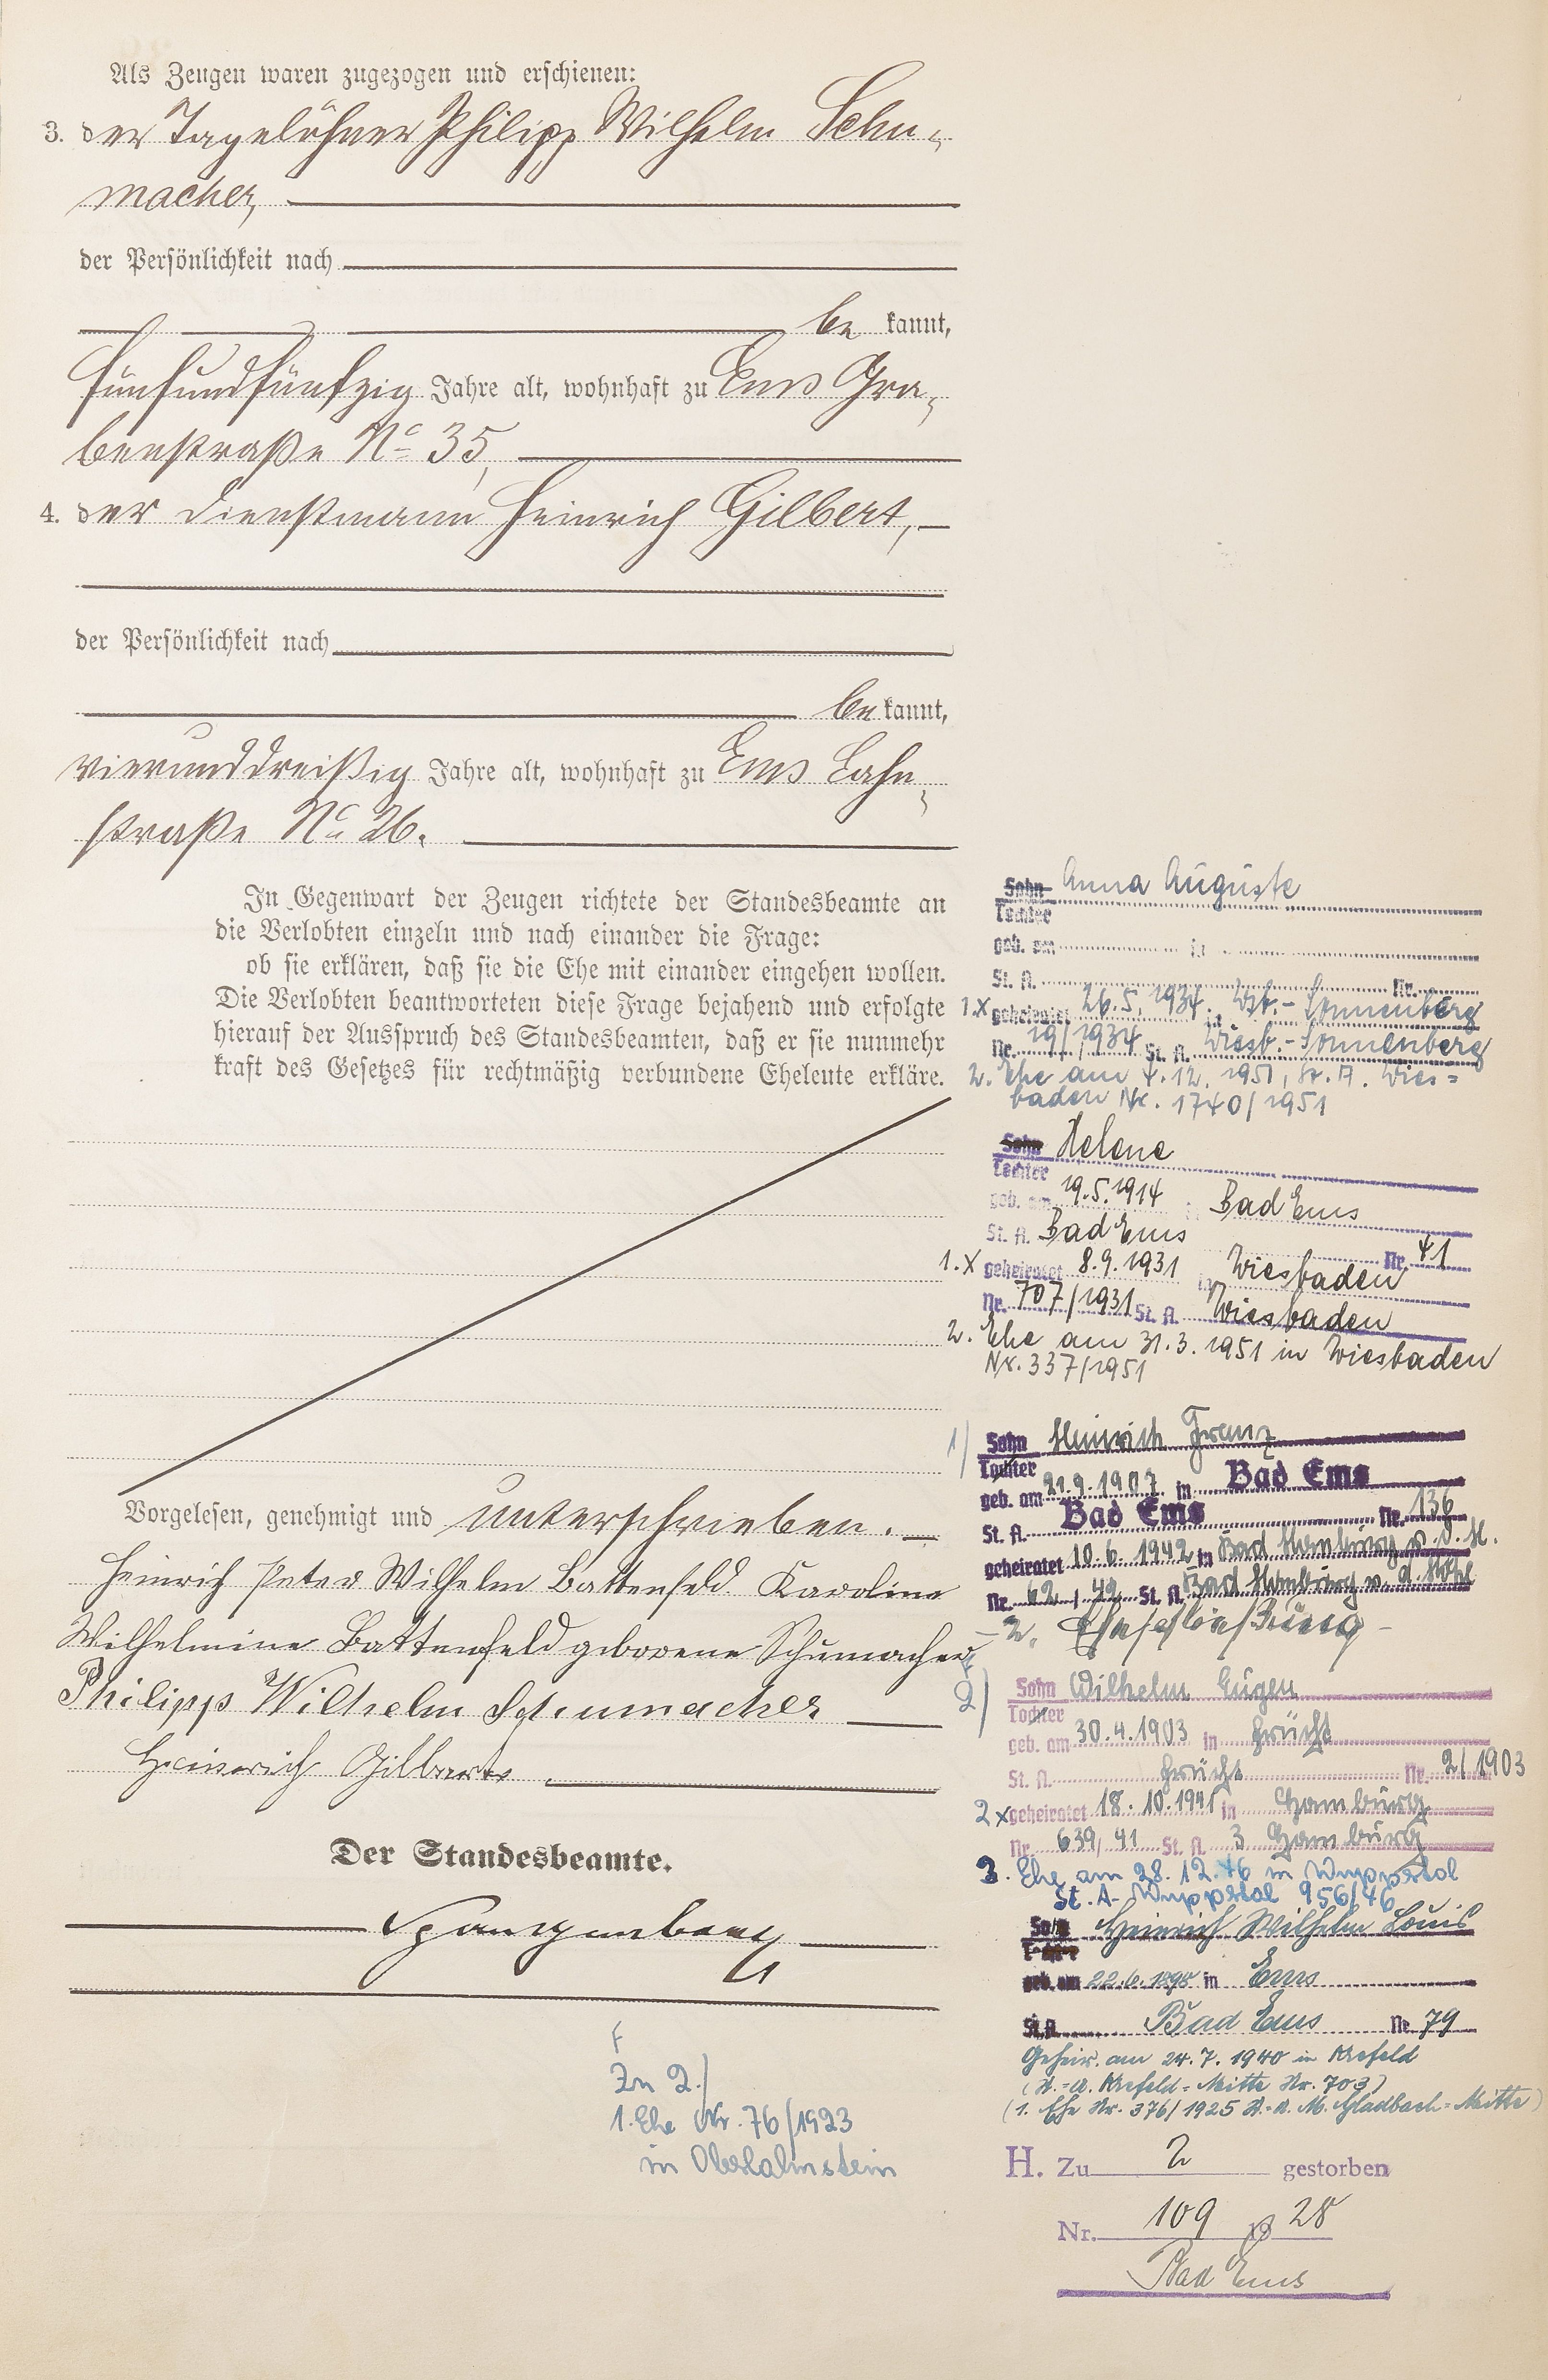 Als Zeugen waren zugezogen und erschienen:
3. der Tagelöhner Philipp Wilhelm Schu-
macher,
der Persönlichkeit nach
be kannt,
fünfundfünfzig Jahre alt, wohnhaft zu Ems Gra-
benstraße No 35,
4. der Dienstmann Heinrich Gilbert,
der Persönlichkeit nach
be kannt,
vierunddreißig Jahre alt, wohnhaft zu Ems Lahn-
straße No 26.
In Gegenwart der Zeugen richtete der Standesbeamte an
die Verlobten einzeln und nach einander die Frage:
ob sie erklären, daß sie die Ehe mit einander eingehen wollen.
Die Verlobten beantworteten diese Frage bejahend und erfolgte
hierauf der Ausspruch des Standesbeamten, daß er sie nunmehr
kraft des Gesetzes für rechtmäßig verbundene Eheleute erkläre.
Vorgelesen, genehmigt und unterschrieben.
Heinrich Peter Wilhelm Battenfeld Karoline
Wilhelmine Battenfeld geborene Schumacher
Philipp Wilhelm Schumacher
Heinrich Gilbert
Der Standesbeamte.
Spangenberg
Zu 2./
1. Ehe Nr. 76/1923
in Oberlahnstein
Sohn Anna Auguste
Tochter
geb. am in
St. A. Nr.
1.X geheiratet 26.5.1934 in Wsb.-Sonnenberg
Nr. 19/1934 St. A. Wiesb.-Sonnenberg
2. Ehe am 4.12.1951, St. A. Wies=
baden Nr. 1740/1951
Sohn Helene
Tochter
geb. am 19.5.1914 in Bad Ems
St. A. Bad Ems Nr. 41
1.X geheiratet 8.9.1931 in Wiesbaden
Nr. 707/1931 St. A. Wiesbaden
2. Ehe am 31.3.1951 in Wiesbaden
Nr. 337/1951
1) Sohn Heinrich Franz
Tochter
geb. am 21.9.1907 in Bad Ems
St. A. Bad Ems Nr. 136
geheiratet 10.6.1942 in Bad Homburg v. d. H.
Nr. 62/42 St. A. Bad Homburg v. d. Höhe
- 2. Eheschließung -
2) Sohn Wilhelm Eugen
Tochter
geb. am 30.4.1903 in Frücht
St. A. Frücht Nr. 2/1903
2x geheiratet 18.10.1941 in Hamburg
Nr. 639/41 St. A. 3 Hamburg
3. Ehe am 28.12.46 in Wuppertal
St. A. Wuppertal 956/46
Sohn Heinrich Wilhelm Louis
Tochter
geb. am 22.6.1898 in Ems
St. A. Bad Ems Nr. 79
Geheir. am 24.7.1940 in Krefeld
(St.=A. Krefeld=Mitte Nr. 703)
(1. Ehe Nr. 376/1925 St.=A. M. Gladbach=Mitte)
H. Zu 2 gestorben
Nr. 109 19 28
Bad Ems